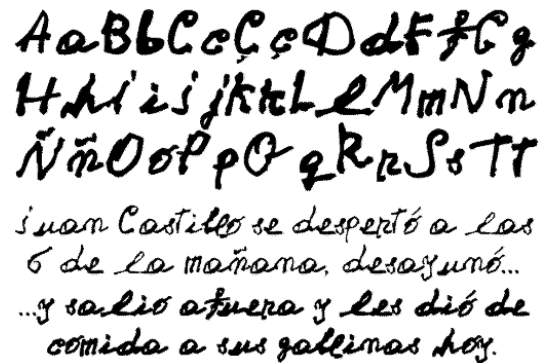 AaBbCcÇçDdFfGg
HhIiJjKkLlMmNn
ÑñOoPpQqRrSsTt
Juan Castillo se despertó a las
6 de la mañana, desayunó...
...y salio afuera y les dió de
comida a sus gallinas hoy.